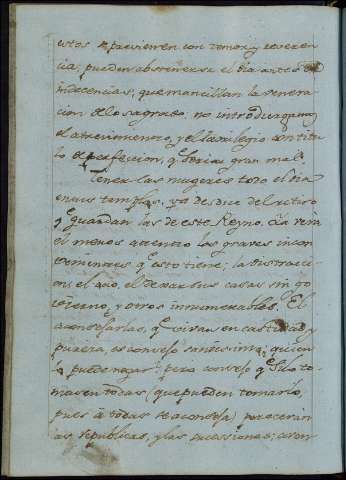 estos se previenen con temor, y reveren
cia, pueden abstenerse el dia antes de
indecencias, que mancillan la venera
cion delo sagrado, no introduzgamos
el atrevimiento, y el sacrilegio con titu
lo de perfeccion, q.e seria gran mal.
Tener las mugeres todo el dia
en sus templos, ya desdice del retiro
q.e guardan las de este Reyno. Ya verá
el menos attento los graves incon
venientes q.e esto tiene; la distracci
on, el ocio, el dexar sus casas sin go
vierno, y otros innumerables. El
aconsejarlas, q.e vivan en castidad, y
pureza, es consejo santissimo; quien
lo puede negar? pero consejo q.e si lo to
masen todas (que pueden tomarlo,
pues à todas se aconseja) perecerán
las republicas, y las sucessiones;